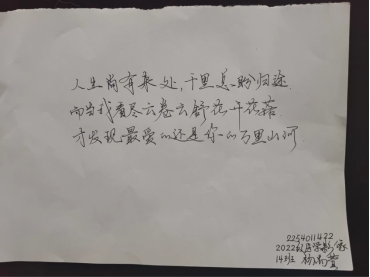 人生尚有来处,千里总盼归途
而当我看尽云卷云舒花开花落
才发现最爱的还是你的万里山河
2254011472
2022级医学影像
14班 杨